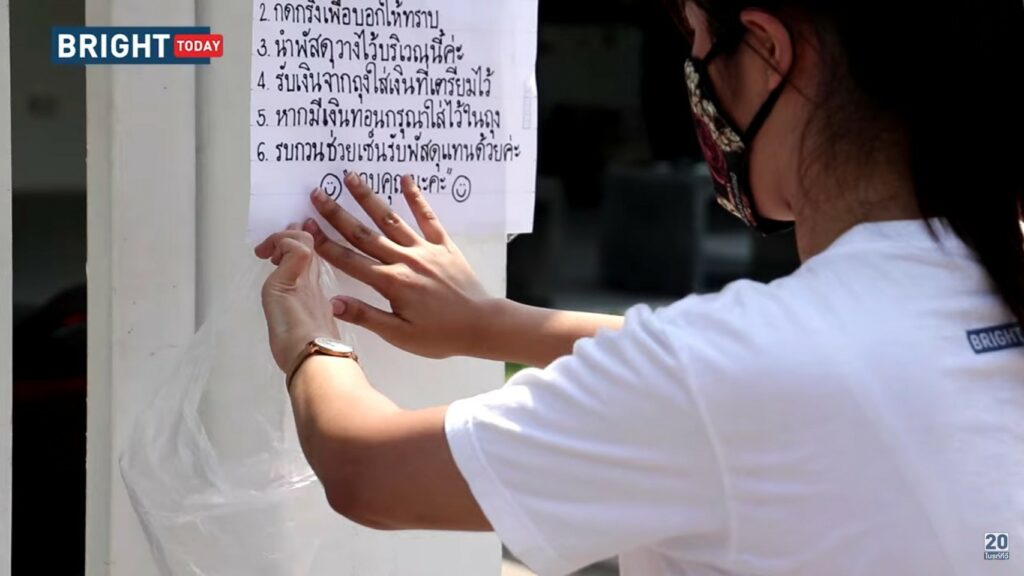 BRIGHT TODAY
2. กดกริ่งเพื่อบอกให้ทราบ
3. นำพัสดุวางไว้บริเวณนี้ค่ะ
4. รับเงินจากถุงใส่เงินที่เตรียมไว้
5. หากมีเงินทอนกรุณาใส่ไว้ในถุง
6. รบกวนช่วยเซ็นรับพัสดุแทนด้วยค่ะ
BRIGHT
20
ไบรท์ทีวี